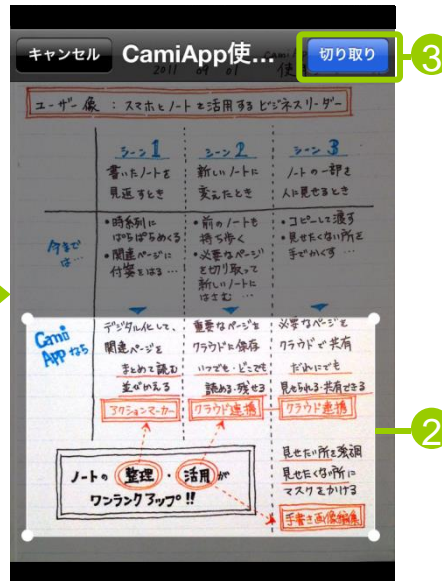 キャンセル
CamiApp使...
切り取り
3
2011 09 01
ユーザー像：スマホとノートを活用するビジネスリーダー
シーン1
書いたノートを
見返すとき
シーン2
新しいノートに
変えたとき
シーン3
ノートの一部を
人に見せるとき
今までは…
・時系列に
ぱらぱらめくる
・関連ページに
付箋をはる…
・前のノートも
持ち歩く
・必要なページ
を切り取って
新しいノートに
はさむ…
・コピーして渡す
・見せたくない所を
手でかくす…
Cami
Appなら
デジタル化して、
関連ページを
まとめて読む
並びかえる
アクションマーカー
重要なページを
クラウドに保存
いつでも・どこでも
読める・残せる
クラウド連携
必要なページを
クラウドで共有
だれにでも
見せられる・共有できる
クラウド連携
2
ノートの整理・活用が
ワンランクアップ!!
見せたい所を強調
見せたくない所に
マスクをかける
手書き画像編集